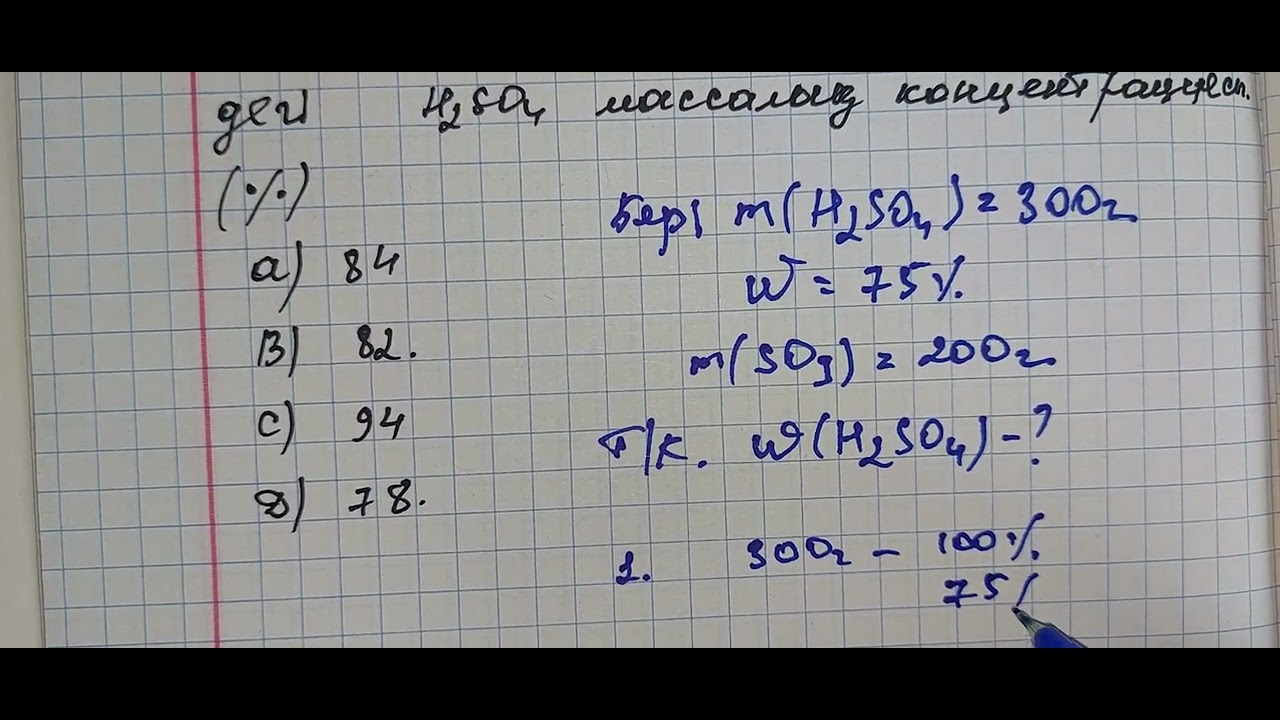 деги H₂SO₄ массалык концентрациясы.
(%)
a) 84
B) 82.
c) 94
D) 78.
Бер; m(H₂SO₄) = 300г
W = 75%
m(SO₃) = 200г
Т/К. W(H₂SO₄) - ?
1. 300г – 100%
75%